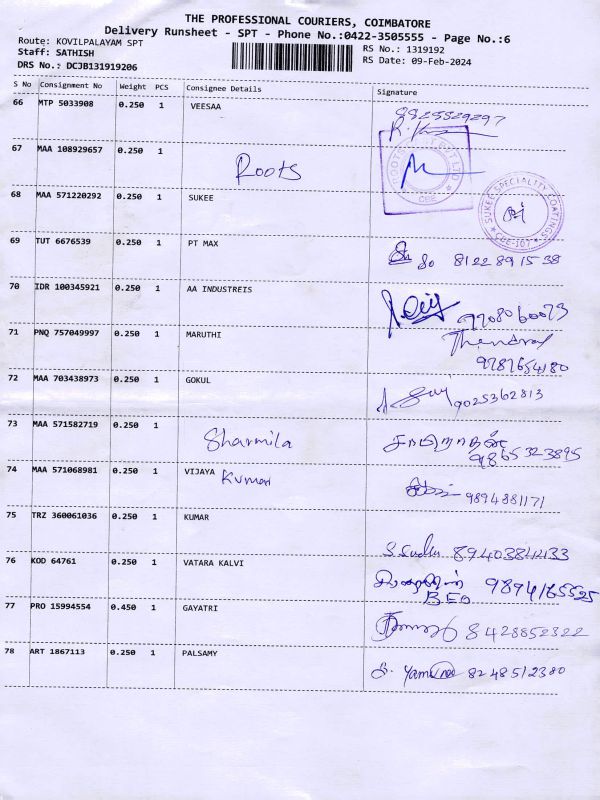 THE PROFESSIONAL COURIERS, COIMBATORE
Delivery Runsheet - SPT - Phone No.:0422-3505555 - Page No.:6
Route: KOVILPALAYAM SPT
RS No.: 1319192
Staff: SATHISH
RS Date: 09-Feb-2024
DRS No.: DCJB131919206
S No Consignment No Weight PCS Consignee Details Signature
66 MTP 5033908 0.250 1 VEESAA
67 MAA 108929657 0.250 1 Roots
CBE
68 MAA 571220292 0.250 1 SUKEE
SUKEE SPECIALITY COATINGS
CBE-107
69 TUT 6676539 0.250 1 PT MAX 8122891538
70 IDR 100345921 0.250 1 AA INDUSTREIS
71 PNQ 757049997 0.250 1 MARUTHI
9787654180
72 MAA 703438973 0.250 1 GOKUL 9025362813
73 MAA 571582719 0.250 1 Sharmila
9865323895
74 MAA 571068981 0.250 1 VIJAYA Kumar 9894881171
75 TRZ 360061036 0.250 1 KUMAR
76 KOD 64761 0.250 1 VATARA KALVI
BEO
77 PRO 15994554 0.450 1 GAYATRI 8428852322
78 ART 1867113 0.250 1 PALSAMY 8248512380